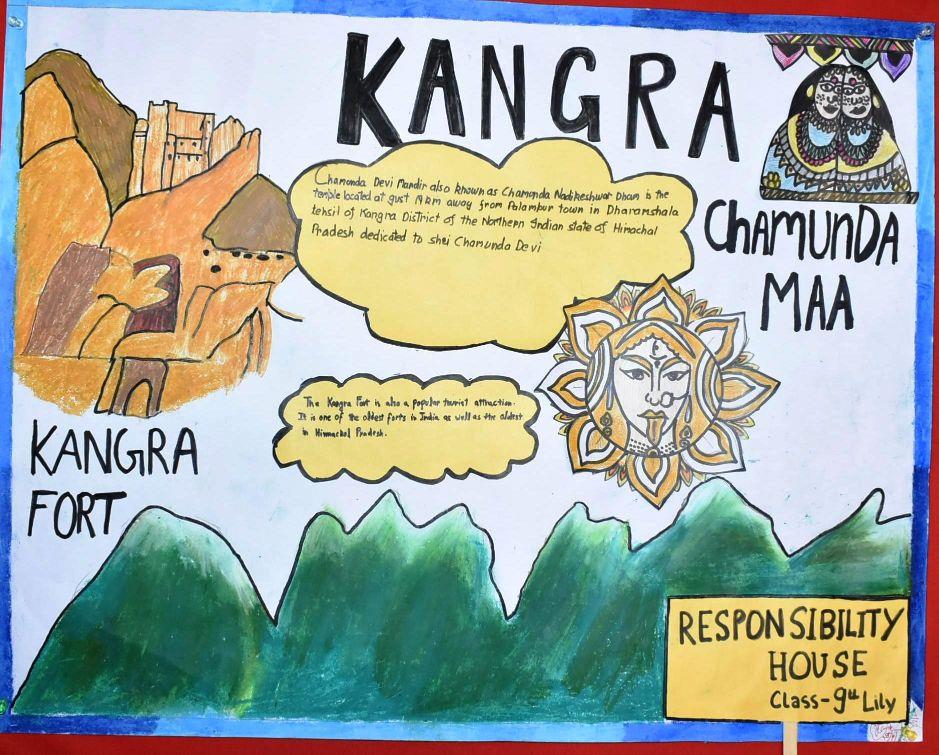 KANGRA
Chamonda Devi Mandir also known as Chamonda Nadikeshwar Dham is the
temple located at gust 19km away from Palampur town in Dharamshala
tehsil of Kangra District of the Northern Indian state of Himachal
Pradesh dedicated to shei Chamunda Devi
CHAMUNDA
MAA
The Kangra Fort is also a popular tourist attraction.
It is one of the oldest forts in India as well as the oldest
in Himachal Pradesh.
KANGRA
FORT
RESPONSIBILITY
HOUSE
Class-9th Lily